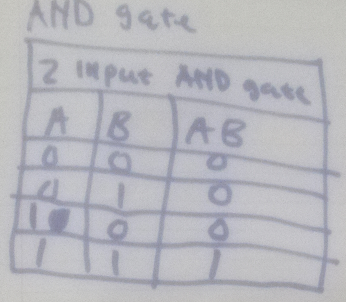 AND gate
2 Input AND gate
A B AB
0 0 0
0 1 0
1 0 0
1 1 1